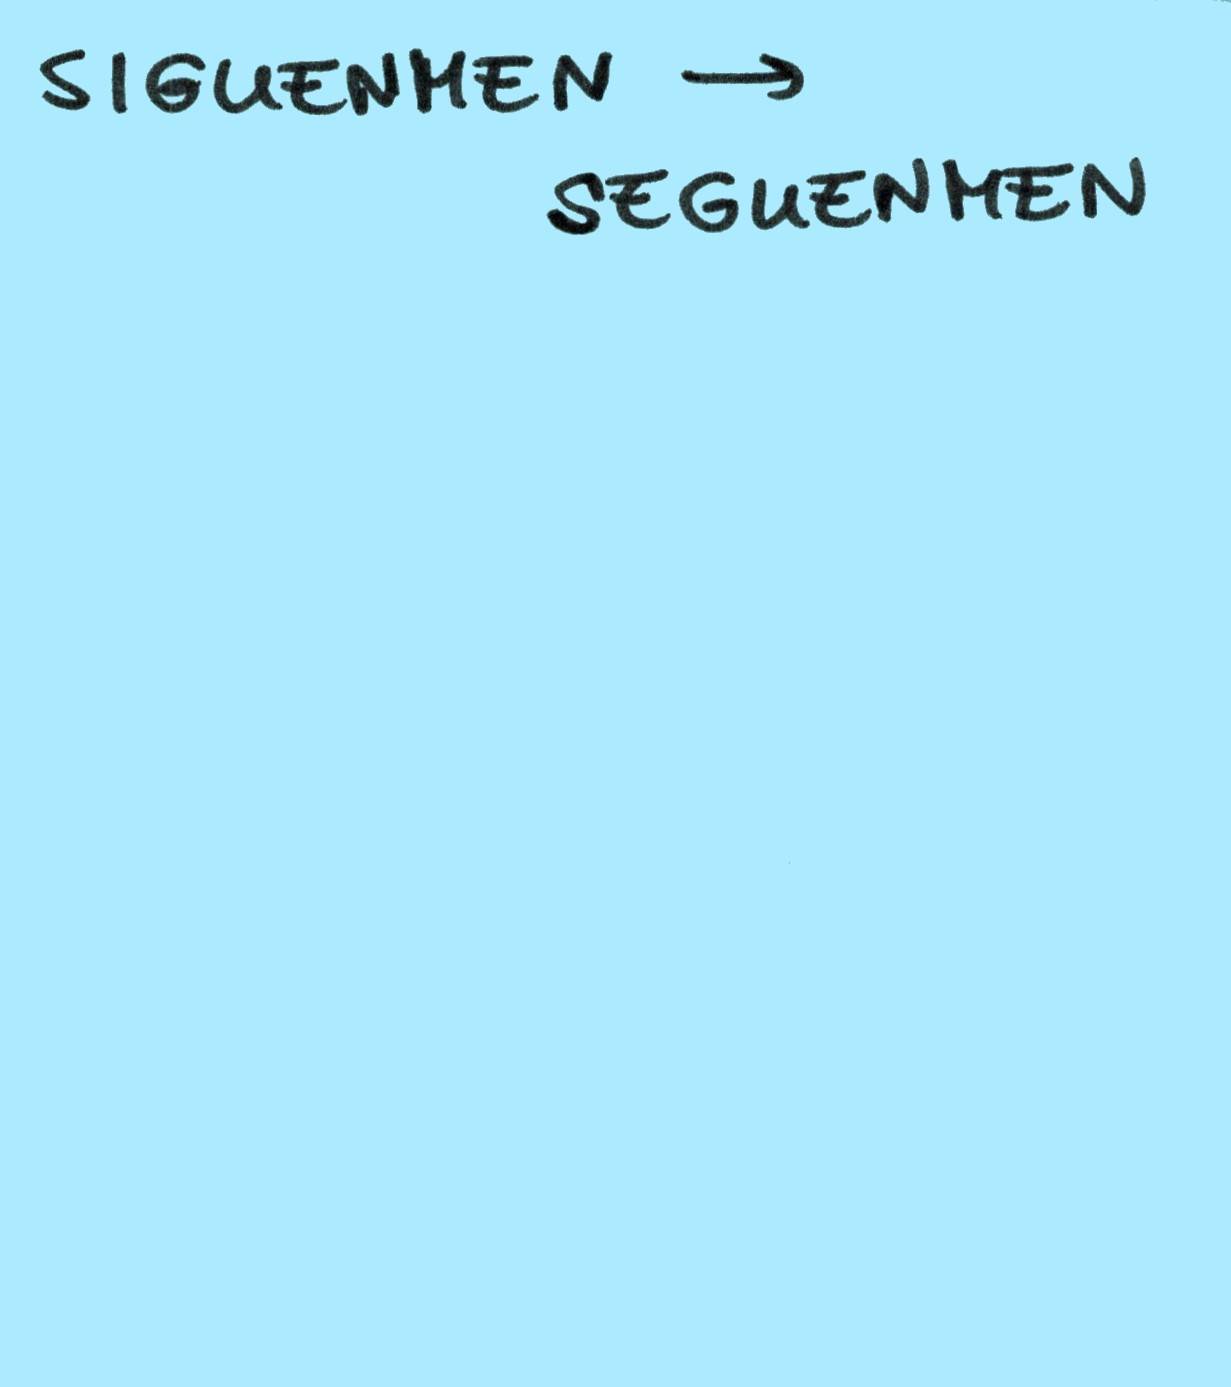 SIGUENMEN →
SEGUENMEN